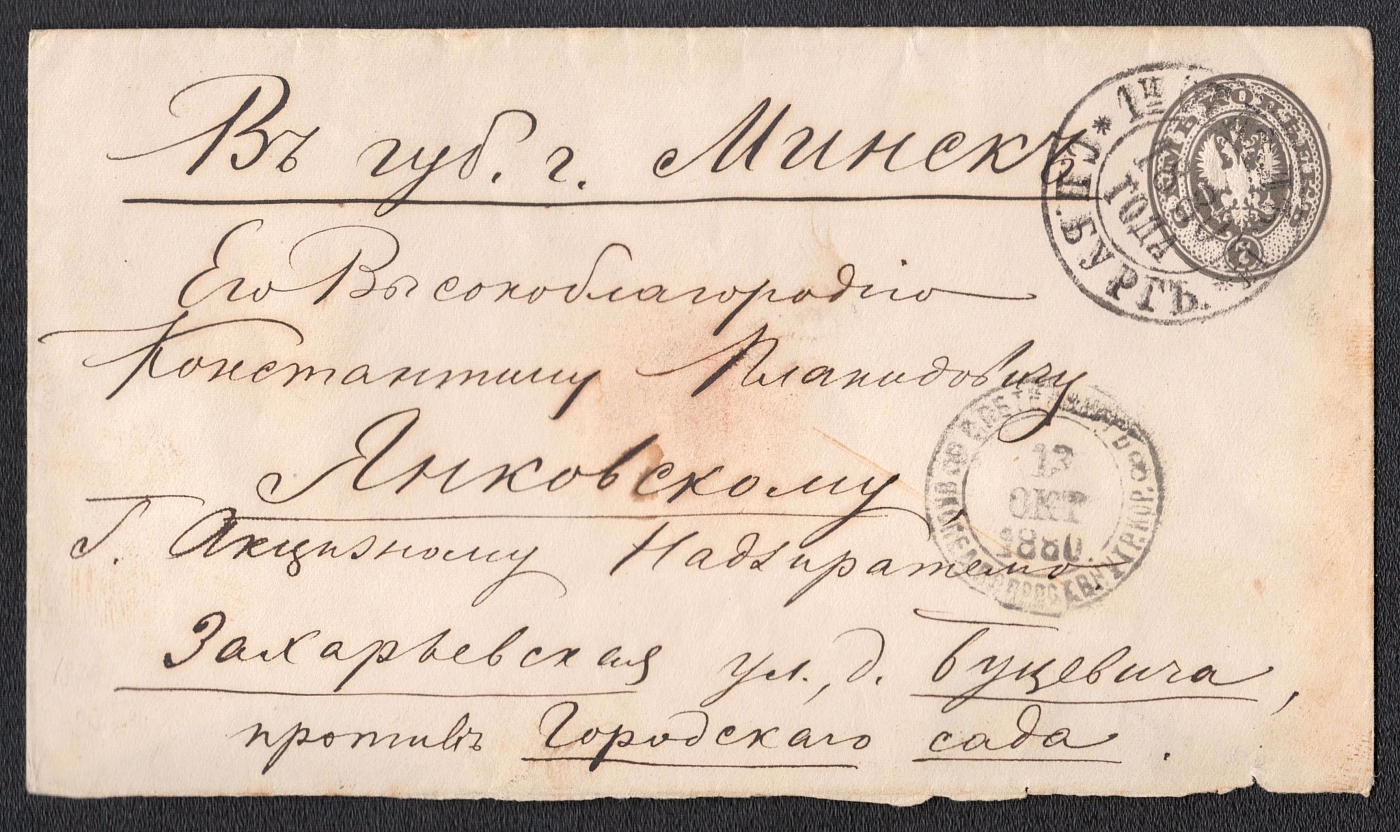 Въ губ. г. Минскъ
Его Высокоблагородію
Константину Плакидовичу
Янковскому
Г. Акцизному Надзирателю
Захарьевская ул., д. Буцевича,
противъ Городского сада.
БУРГЪ.
ГОДА
12
ОКТ
1880